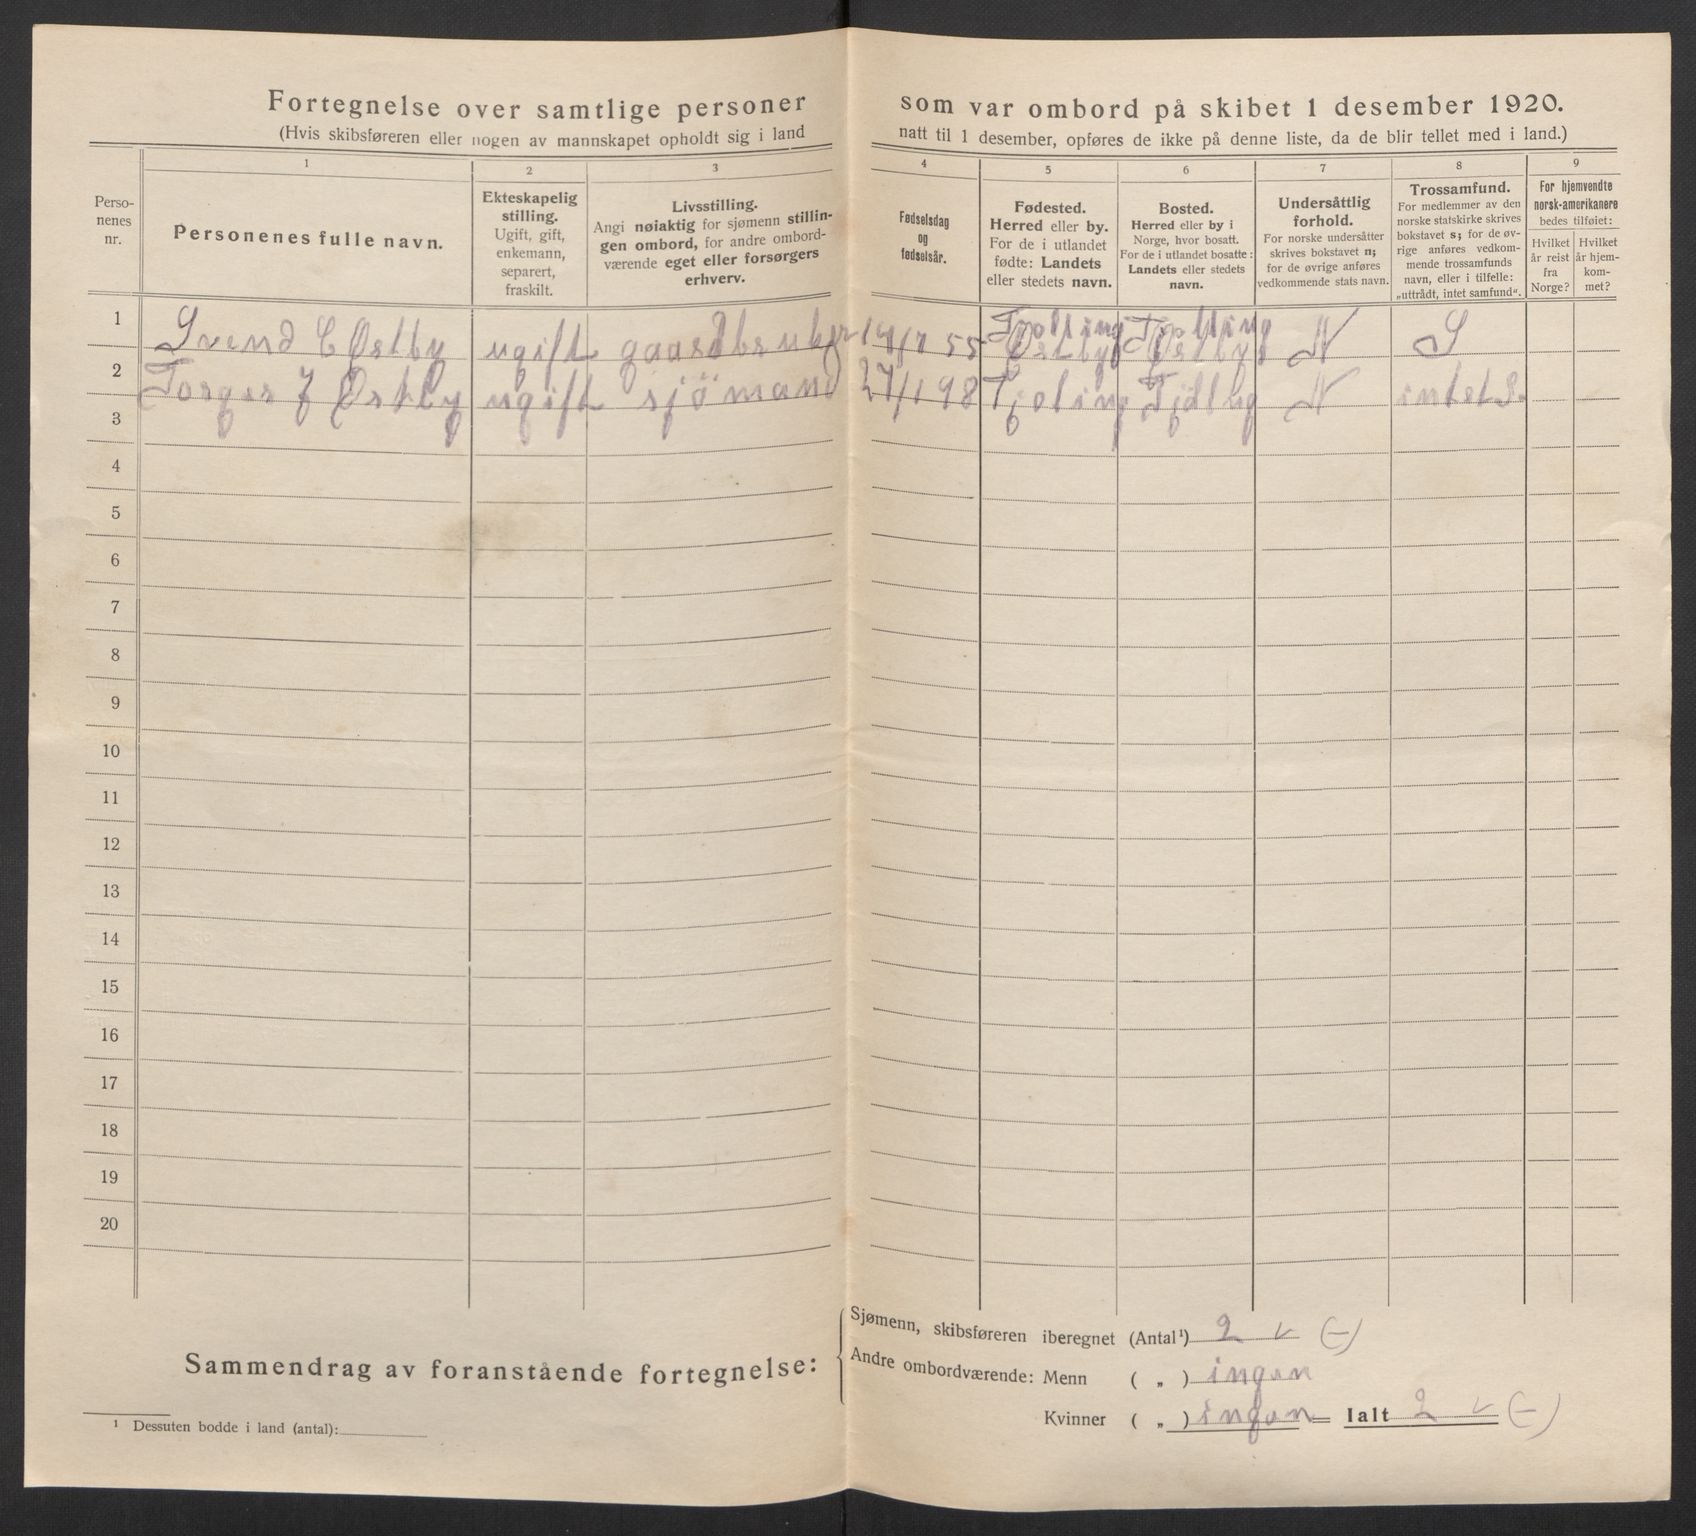 Fortegnelse over samtlige personer som var ombord på skibet 1 desember 1920.
(Hvis skibsføreren eller nogen av mannskapet opholdt sig i land natt til 1 desember, opføres de ikke på denne liste, da de blir tellet med i land.)
Perso-
nenes
nr.
1
Personenes fulle navn.
2
Ekteskapelig
stilling.
Ugift, gift,
enkemann,
separert,
fraskilt.
3
Livsstilling.
Angi nøiaktig for sjømenn stillin-
gen ombord, for andre ombord-
værende eget eller forsørgers
erhverv.
4
Fødselsdag
og
fødselsår.
5
Fødested.
Herred eller by.
For de i utlandet
fødte: Landets
eller stedets navn.
6
Bosted.
Herred eller by i
Norge, hvor bosatt.
For de i utlandet bosatte:
Landets eller stedets
navn.
7
Undersåttlig
forhold.
For norske undersåtter
skrives bokstavet n;
for de øvrige anføres
vedkommende stats navn.
8
Trossamfund.
For medlemmer av den
norske statskirke skrives
bokstavet s; for de øv-
rige anføres vedkom-
mende trossamfunds
navn, eller i tilfelle:
„uttrådt, intet samfund“.
9
For hjemvendte
norsk-amerikanere
bedes tilføiet:
Hvilket
år reist
fra
Norge?
Hvilket
år hjem-
kom-
met?
1 Svend C Østby ugift gaardbruker 55 Tjølling Østby Tjølling Østby N S
2 Torger J Østby ugift sjömand 27/1 98 Tjøling N intet S.
3
4
5
6
7
8
9
10
11
12
13
14
15
16
17
18
19
20
Sammendrag av foranstående fortegnelse:
Sjømenn, skibsføreren iberegnet (Antal¹) 2 v (–)
Andre ombordværende: Menn ( „ ) ingen
Kvinner ( „ ) ingen Ialt 2 v (–)
¹ Dessuten bodde i land (antal):